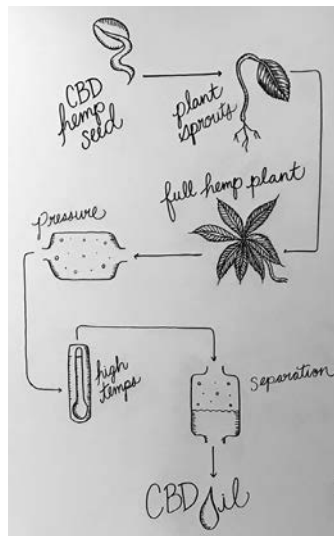 CBD
hemp
seed
plant
sprouts
full hemp plant
pressure
high
temps
separation
CBD oil